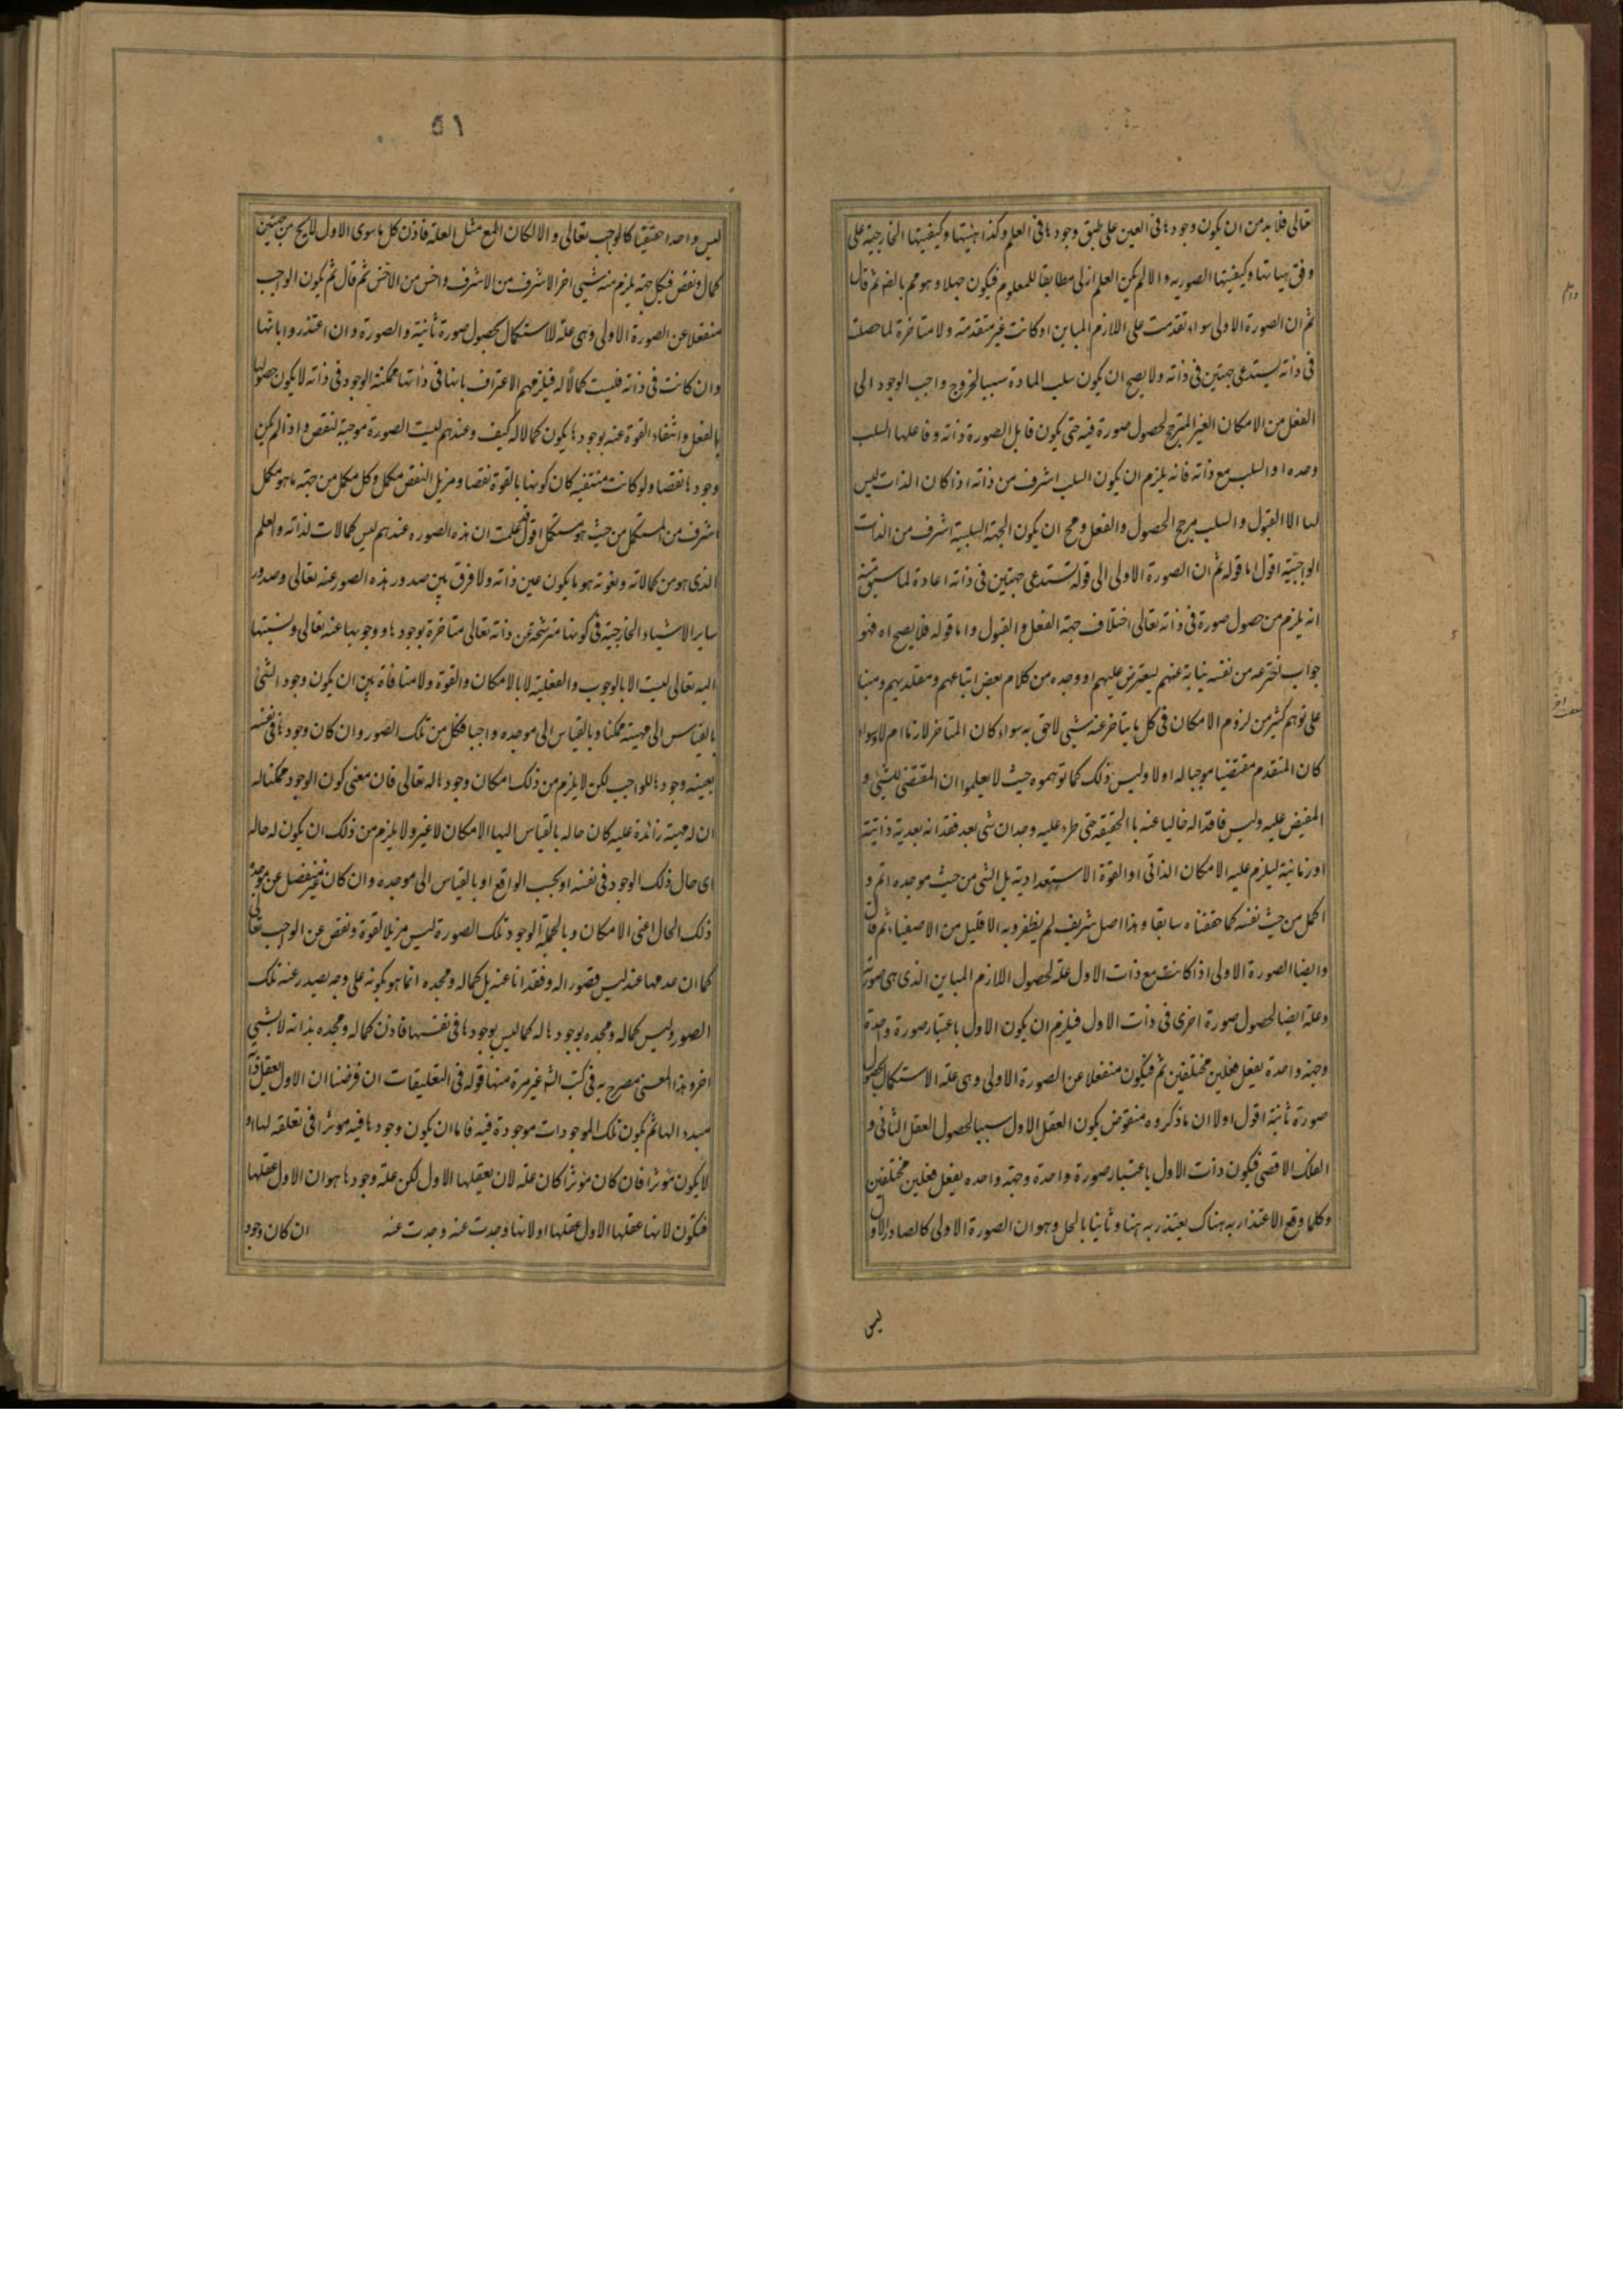 تعالى فلا بد من ان يكون وجودها فى العين على طبق وجودها فى العلم وكذا هيئتها وكيفيتها الخارجية على
وفق هيئاتها وكيفيتها الصوريه والا لم يكن العلم ازلى مطابقا للمعلوم فيكون جهلا وهو مح بالضه ثم قال
ثم ان الصورة الاولى سواء تقدمت على اللازم المباين او كانت غير متقدمته ولا متاخرة لما حصلت
فى ذاته يستدعى جهتين فى ذاته ولا يصح ان يكون سلب المادة سببا لخروج واجب الوجود الى
الفعل من الامكان الغير المترجح لحصول صورة فيه حتى يكون قابل الصورة ذاته وفاعلها السلب
وحده او السلب مع ذاته فانه يلزم ان يكون السلب اشرف من ذاته اذا كان الذات ليس
لها الا القبول والسلب مرجح الحصول والفعل ومح ان يكون الجهة السلبية اشرف من الذات
الواجبية اقول اما قوله ثم ان الصورة الاولى الى قوله تستدعى جهتين فى ذاته اعادة لما سبق منه
انه يلزم من حصول صورة فى ذاته تعالى اختلاف جهة الفعل والقبول واما قوله فلا يصح اه فهو
جواب اخترعه من نفسه نيابة عنهم ليعترض عليهم او وجده من كلام بعض اتباعهم ومقلديهم ومبنا
على توهم كثير من لزوم الامكان فى كل ما يتاخر عنه شيى لاحق به سواء كان المتاخر لازما ام لا وسواء
كان المتقدم مقتضيا موجبا له اولا وليس ذلك كما توهموه حيث لا يعلموا ان المقتضى للشيئ و
المفيض عليه وليس فاقدا له خاليا عنه با الحقيقه حتى طرء عليه وجدان شى بعد فقدانه بعدية ذاتية
او زمانية ليلزم عليه الامكان الذاتى او القوة الاستعدادية بل الشى من حيث موجده اتم و
اكمل من حيث نفسه كما حققناه سابقا وهذا اصل شريف لم يظفر وبه الا قليل من الاصفياء ثم قال
وايضا الصورة الاولى اذا كانت مع ذات الاول علة لحصول اللازم المباين الذى هى صورته
وعلة ايضا لحصول صورة اخرى فى ذات الاول فيلزم ان يكون الاول باعتبار صورة واحدة
وجهة واحدة يفعل فعلين مختلفين ثم فيكون منفعلا عن الصورة الاولى وهى علة الاستكمال بحصول
صورة ثانية اقول اولا ان ما ذكروه منقوض بكون العقل الاول سببا لحصول العقل الثانى و
الفلك الاقصى فيكون ذات الاول باعتبار صورة واحدة وجهة واحده يفعل فعلين مختلفين
وكلما وقع الاعتذار به هناك يعتذر به هنا وثانيا بالحل وهو ان الصورة الاولى كالصادر الاول
ليس
٥١
ليس واحدا حقيقيا كالواجب تعالى والا لكان المع مثل العلة فاذن كل ما سوى الاول لا يخ من جهتين
كمال ونقص فبكل جهة يلزم منه شيى اخر الاشرف من الاشرف واخس من الاخس ثم قال ثم يكون الواجب
منفعلا عن الصورة الاولى وهى علة للاستكمال بحصول صورة ثانية والصورة وان اعتذروا بانها
وان كانت فى ذاته فليست كمالا له فيلزمهم الاعتراف بانها فى ذاتها ممكنة الوجود فى ذاته لا يكون حصولها
بالفعل وانتفاء القوة عنه بوجودها يكون كمالا له كيف وعندهم ليت الصورة موجبة لنقص واذا لم يكن
وجودها نقصا ولو كانت منتفيه كان كونها بالقوة نقصا ومزيل النقص مكمل وكل مكمل من جهة ما هو مكمل
اشرف من المستكمل من حيث هو مستكمل اقول قد علمت ان هذه الصوره عندهم ليس كمالات لذاته والعلم
الذى هو من كمالاته ونعوته هو ما يكون عين ذاته ولا فرق بين صدور هذه الصور عنه تعالى وصدور
ساير الاشياء الخارجية فى كونها مترشحة عن ذاته تعالى متاخرة بوجودها ووجوبها عنه تعالى ونسبتها
اليه تعالى ليست الا بالوجوب والفعلية لا بالامكان والقوة ولا منافاة بين ان يكون وجود الشئ
بالقياس الى مهيته ممكنا وبالقياس الى موجده واجبا فكل من تلك الصور وان كان وجودها فى نفسه
بعينه وجودها للواجب لكن لا يلزم من ذلك امكان وجودها له تعالى فان معنى كون الوجود ممكنا له
ان له مهية زائدة عليه كان حاله بالقياس اليها الامكان لا غير ولا يلزم من ذلك ان يكون له حاله
اى حال ذلك الوجود فى نفسه او بحسب الواقع او بالقياس الى موجده وان كان غير منفصل عن موجده
ذلك الحال اعنى الامكان وبالجملة الوجود تلك الصورة ليس مزيلا لقوة ونقص عن الواجب تعالى
كما ان عدمها عنه ليس قصورا له وفقدانا عنه بل كماله ومجده انما هو بكونه على وجه يصدر عنه تلك
الصور وليس كماله ومجده بوجودها له كما ليس بوجودها فى نفسها فاذن كماله ومجده بذاته لا بشيى
اخر وهذا المعنى مصرح به فى كتب الشه غير مرة منها قوله فى التعليقات ان فرضنا ان الاول العقل ذاته
مبدء الها ثم يكون تلك الموجودات موجودة فيه فاما ان يكون وجودها فيه موثرا فى تعلقه لها او
لا يكون موثرا فان كان موثرا كان علة لان يعقلها الاول لكن علة وجودها هو ان الاول عقلها
فيكون لانها عقلها الاول عقلها او لانها وجدت عنه وجدت عنه ان كان وجود